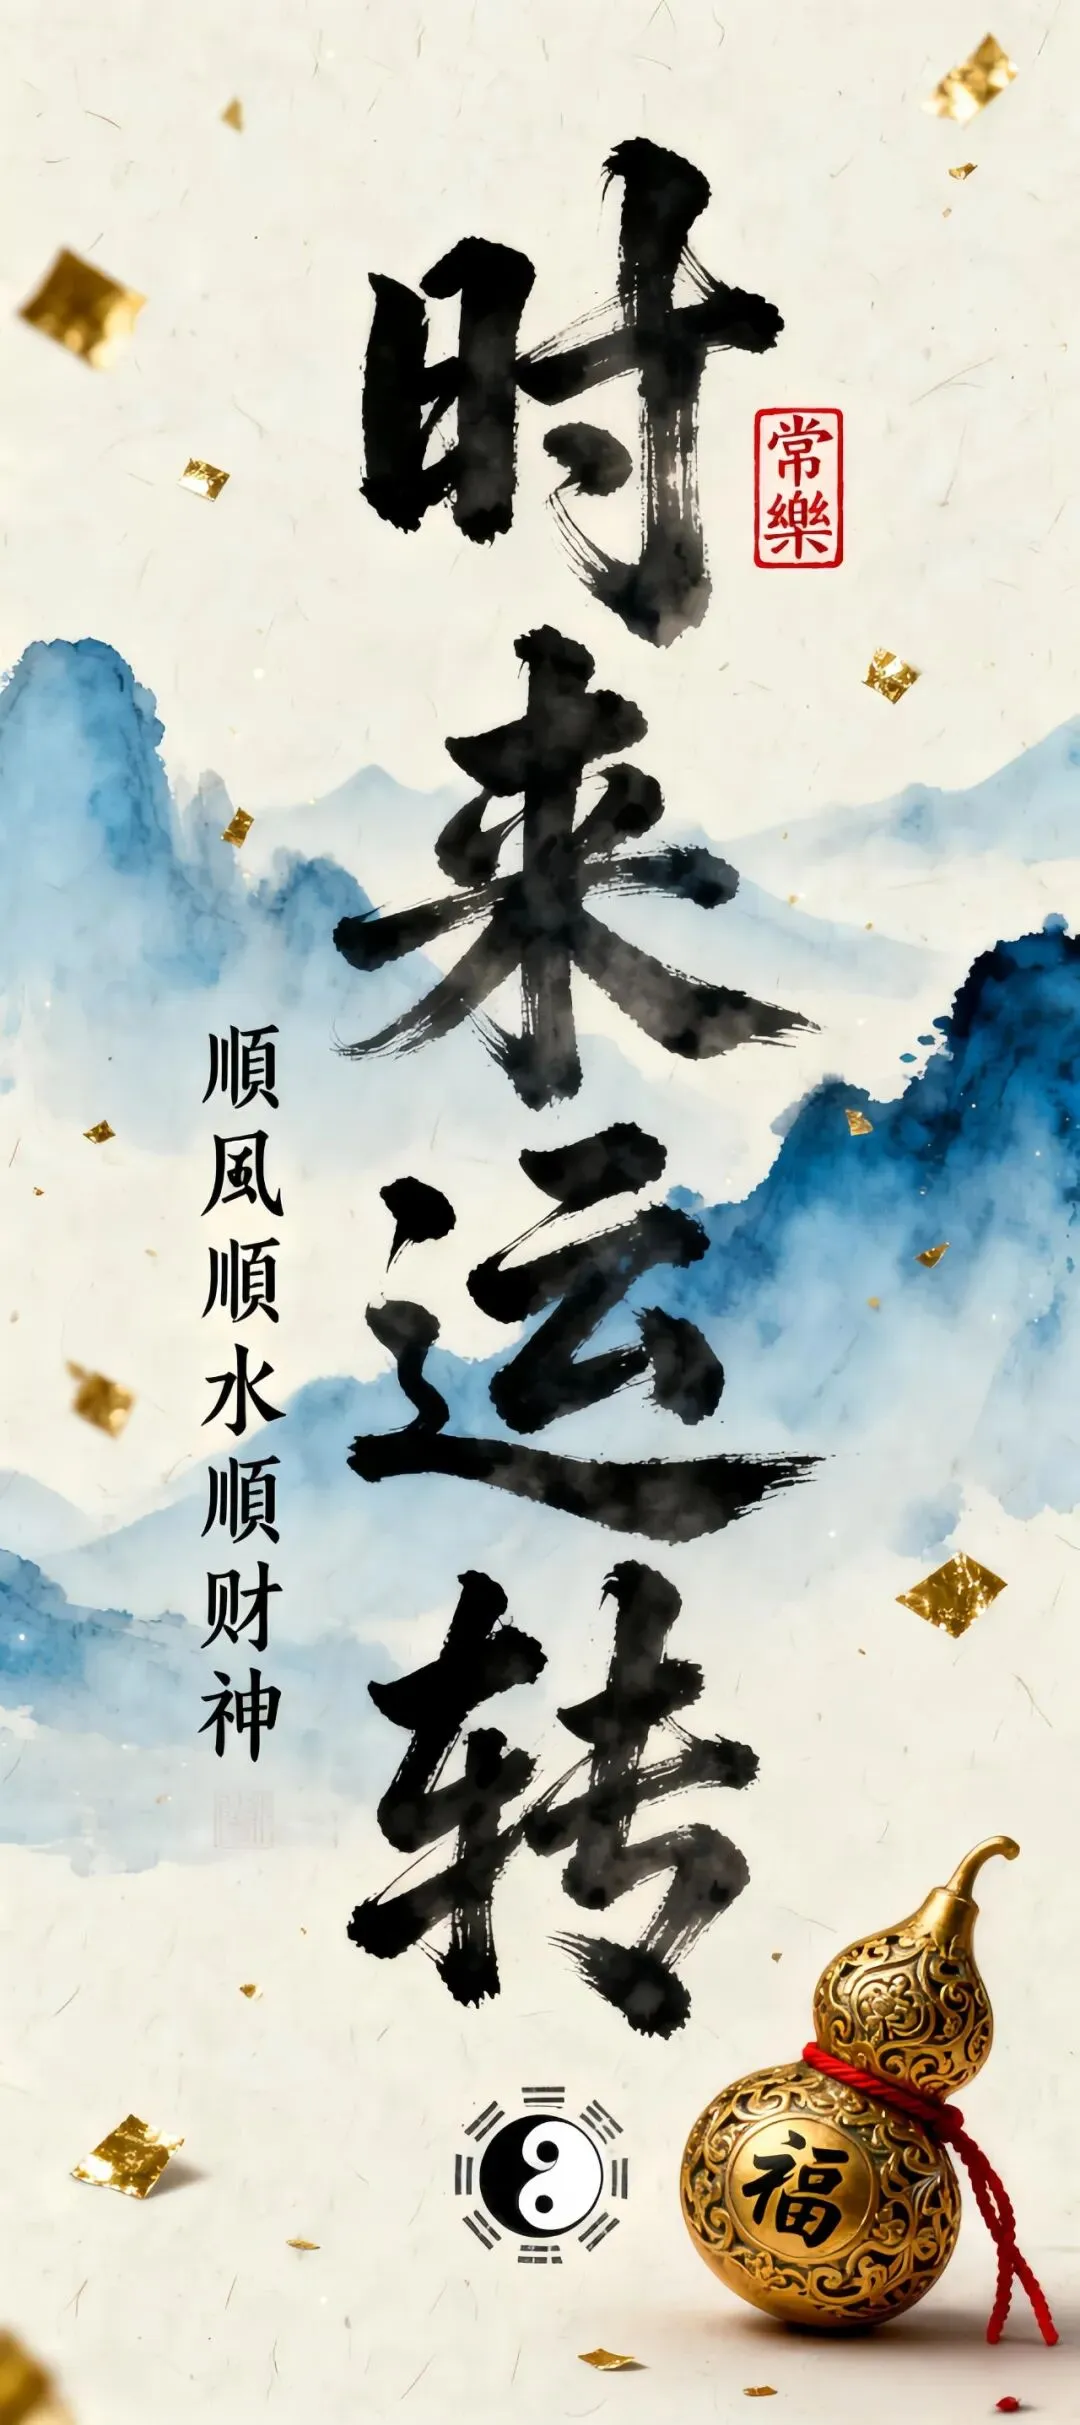 时来运转
常樂
順風順水順财神
福